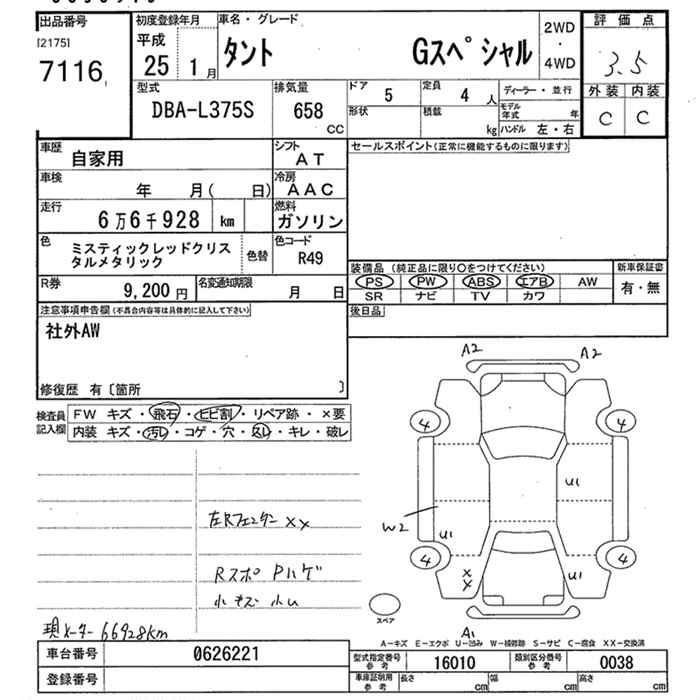 出品番号
[2175]
7116
初度登録年月
平成
25 1月
車名・グレード
タント Gスペシャル
2WD
・
4WD
評価点
3.5
外装 内装
C C
型式
DBA-L375S
排気量
658
CC
ドア
5
定員
4 人
ディーラー・並行
形状
積載
kg
モデル年式 年
ハンドル 左・右
車歴
自家用
シフト
AT
セールスポイント(正常に機能するものに限ります)
車検
年 月( 日)
冷房
AAC
走行
6万6千928 km
燃料
ガソリン
色
ミスティックレッドクリス
タルメタリック
色替
色コード
R49
装備品(純正品に限り〇をつけてください)
新車保証書
PS PW ABS エアB AW
有・無
SR ナビ TV カワ
R券
9,200 円
名変通知期限
月 日
後日品
注意事項申告欄(不具合内容等は具体的に記入して下さい)
社外AW
修復歴 有〔箇所 〕
検査員
記入欄
FW キズ・飛石・ヒビ割・リペア跡・×要
内装 キズ・汚レ・コゲ・穴・スレ・キレ・破レ
A2 A2
4 4
U1
W2
U1
4 4
XX
U1
スペア
A1
左Rフェンダー XX
Rスポ Pハゲ
小キズ 小U
現メーター 66928km
A-キズ E-エクボ U-凹み W-補修跡 S-サビ C-腐食 XX-交換済
車台番号
0626221
登録番号
型式指定番号
参考
16010
類別区分番号
参考
0038
車庫証明用
参考
長さ cm
幅 cm
高さ cm